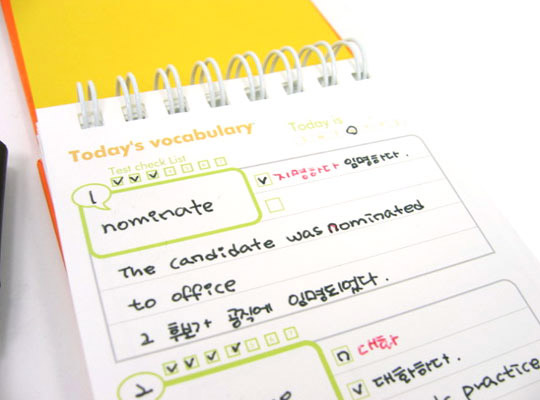 Today's vocabulary
Today is
Test check List
1
지명하다 임명하다.
nominate
The candidate was nominated
to office
2 후보가 공직에 임명되었다.
2
n 대화
v 대화하다.
practice